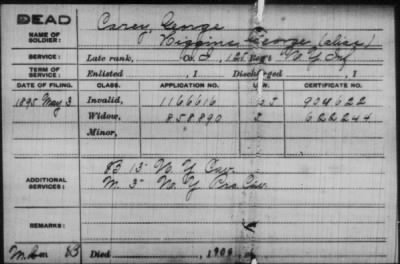 DEAD
NAME OF SOLDIER: Carey, George
Higgins, George (alias)
SERVICE: Late rank, Co. I, 125 Reg't N.Y. Inf
TERM OF SERVICE: Enlisted , 1 Discharged , 1
DATE OF FILING. CLASS. APPLICATION NO. CERTIFICATE NO.
1895 May 3 Invalid, 1166616 904622
Widow, 858890 622244
Minor,
ADDITIONAL SERVICES: B 15 N.Y. Cav.
M. 5 N.Y. Pro. Cav.
REMARKS:
Died , 190